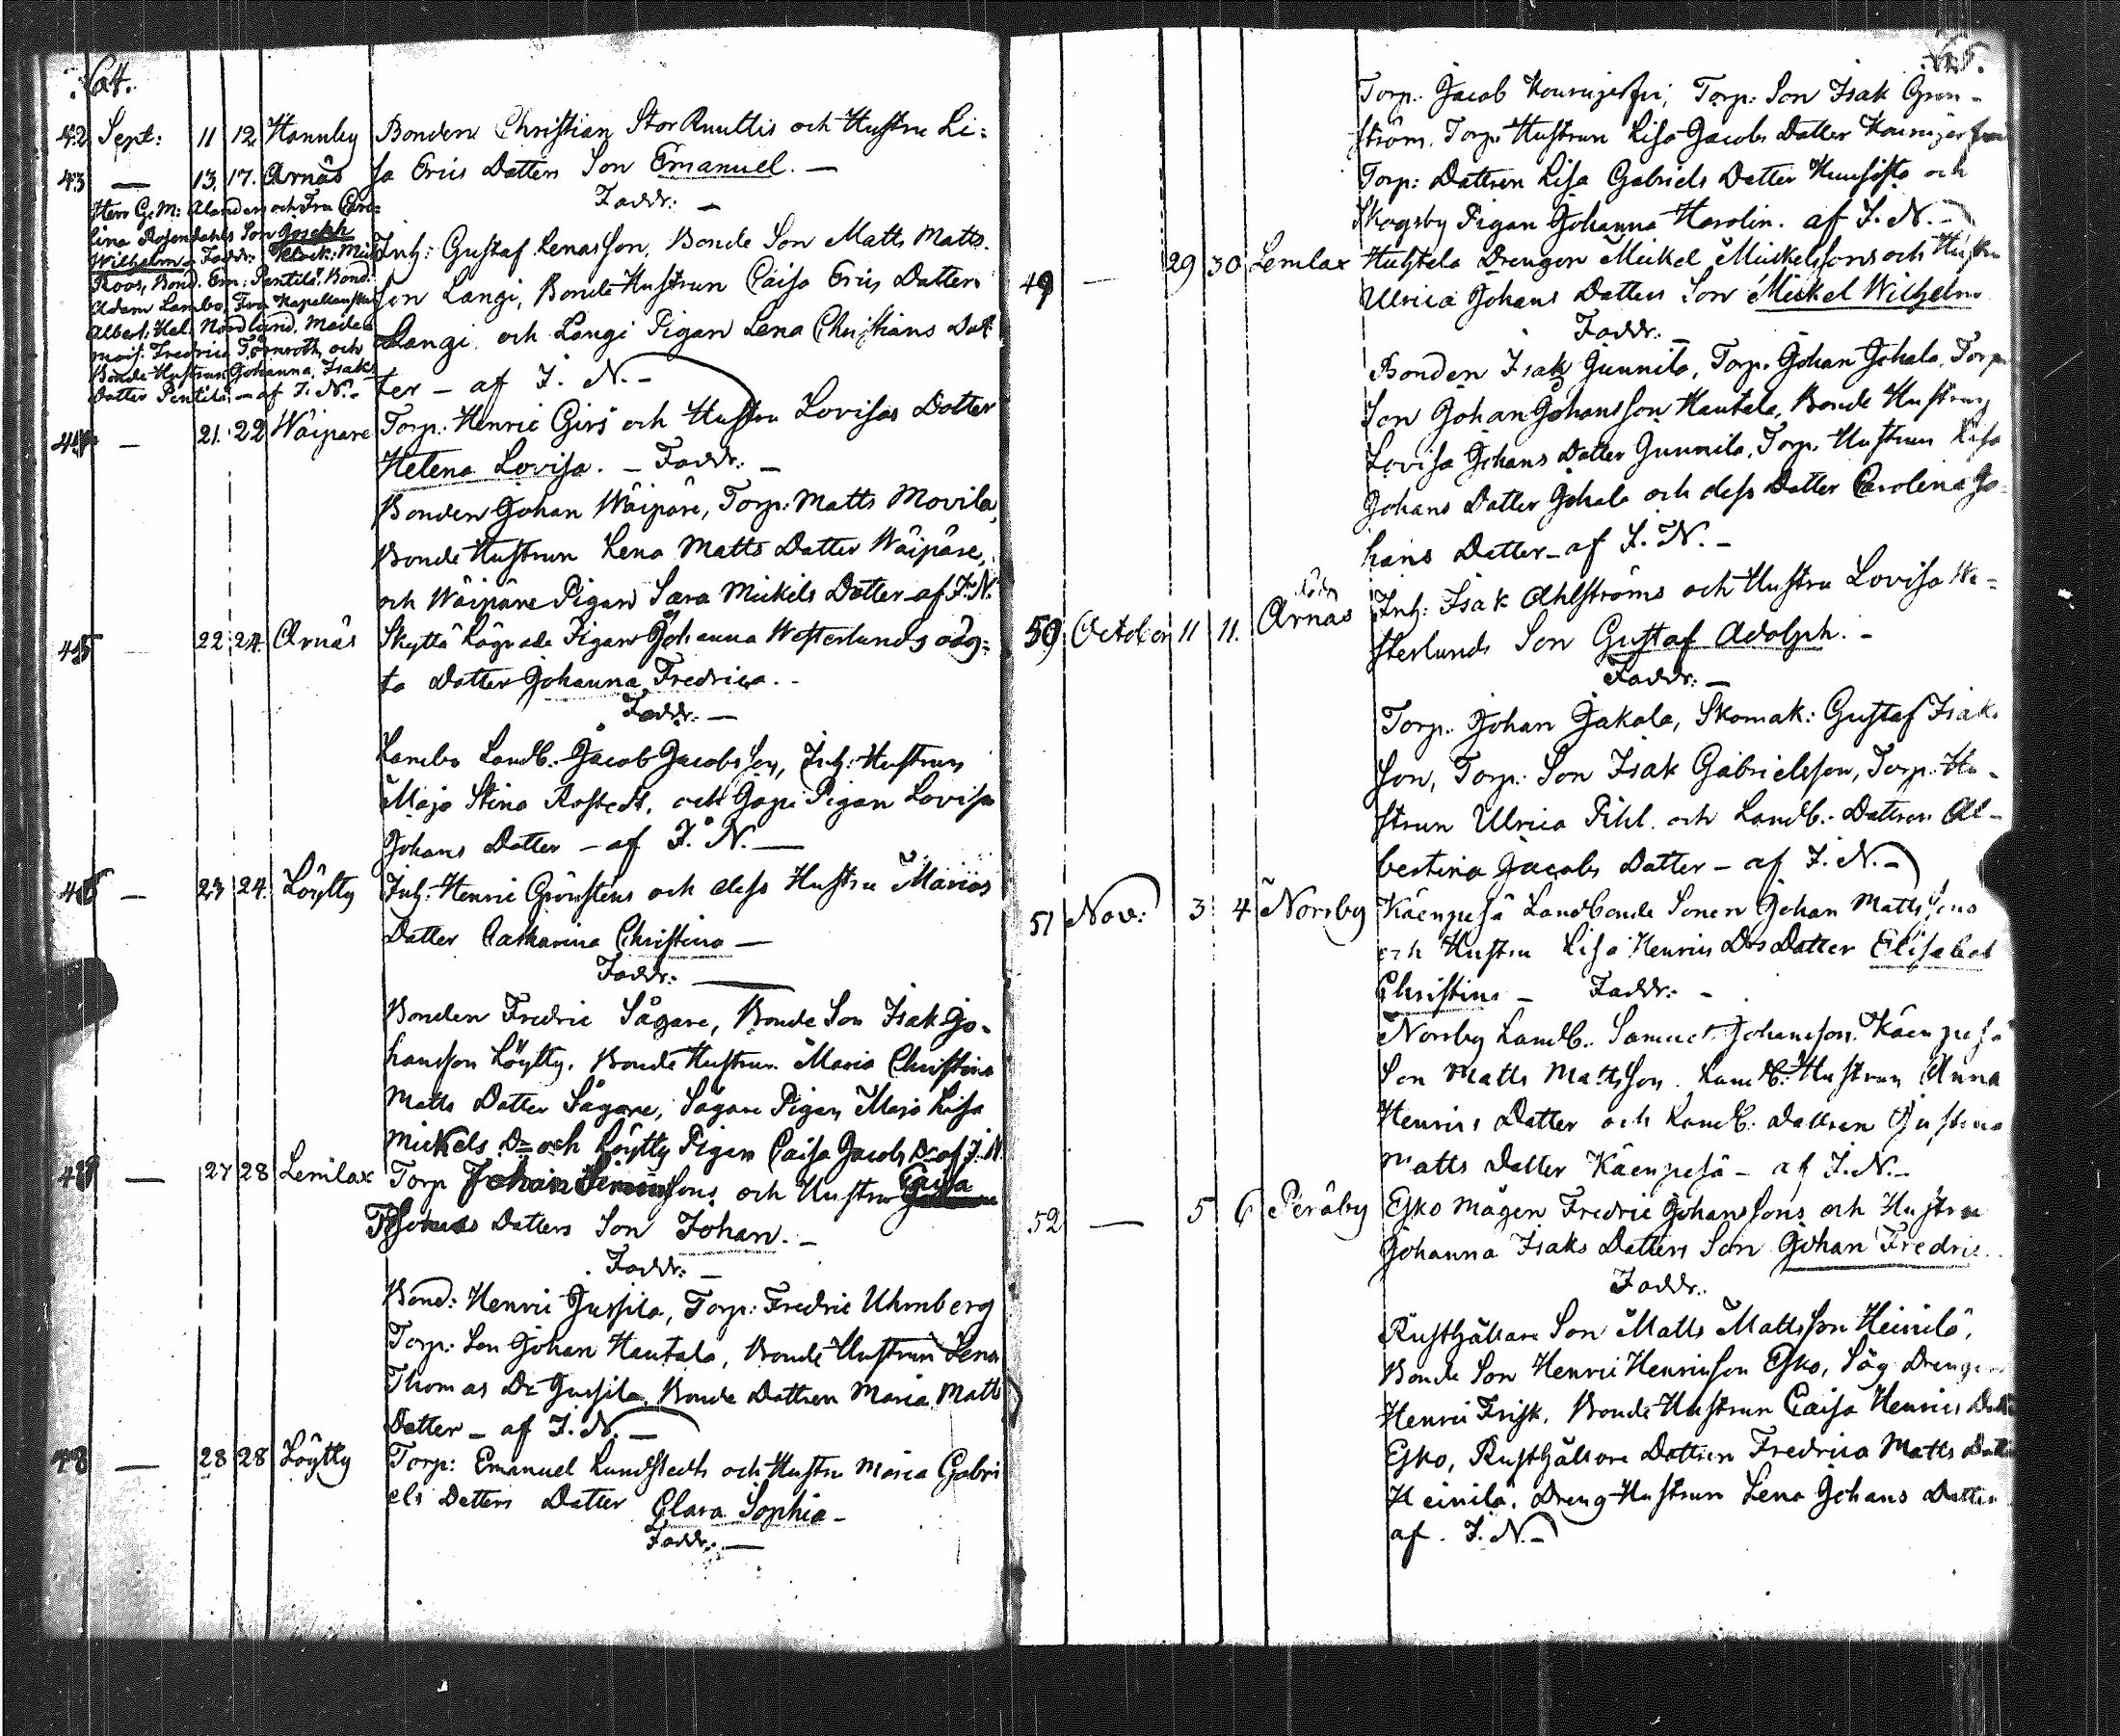 64.
42 Sept: 11 12 Hannby Bonden Christian StorKnuttis och Hustru Li=
sa Erics Dotters Son Emanuel. —
Faddr: —
Inh: Gustaf Lenasson, Bonde Son Matts Matts-
son Langi, Bonde Hustrun Caisa Erics Dotter
Langi och Langi Pigan Lena Christians Dot-
ter — af I. N. —
43 — 13. 17. Arnäs
Herr G: M: Alanders och Fru Caro=
lina Rosendahls Son Joseph
Wilhelm — Faddr: Klock:
Roos, Bond. Em: Pentilä, Bond:
Adam Lambo, Fru
Albert: Hel: Nordlund,
Fredrica Törnroth, och
Bonde Hustrun Johanna Isaks
Dotter Pentilä — af I. N. —
44 — 21. 22 Wäipäre Torp. Henric Girs och Hustru Lovisas Dotter
Helena Lovisa. — Faddr: —
Bonden Johan Wäipäre, Torp: Matts Movila,
Bonde Hustrun Lena Matts Dotter Wäipäre,
och Wäipäre Pigan Sara Mickels Dotter af I. N.
45 — 22 24. Arnäs Skyttä Pigan Johanna Westerlunds oäg=
ta Dotter Johanna Fredrica. —
Faddr: —
Lambo Landb. Jacob Jacobsson, Inh: Hustrun
Maja Stina Rostedt, och Pigan Lovisa
Johans Dotter — af I. N. —
46 — 23 24. Löytty Inh: Henric Grönstens och dess Hustru Marias
Dotter Catharina Christina —
Faddr: —
Bonden Fredric Sågare, Bonde Son Isak Jo-
hansson Löytty, Bonde Hustrun Maria Christina
Matts Dotter Sågare, Sågare Pigan Maja Lisa
Mickels Dr och Löytty Pigan Caisa Jacobs Dr af I. N.
47 — 27 28 Lemlax Torp Johan Simonsons och Hustru Caisa
Thomas Dotters Son Johan. —
Faddr: —
Bond: Henric Jussila, Torp: Fredric Uhrnberg
Torp: Son Johan Hautala, Bonde Hustrun Lena
Thomas Dr Jussila, Bonde Dottren Maria Matts
Dotter — af I. N. —
48 — 28 28 Löytty Torp: Emanuel Lundstedts och Hustru Maria Gabri
els Dotters Dotter Clara Sophia —
Faddr: —
65.
Torp: Jacob Torp: Son Isak Grön-
ström, Torp Hustrun Lisa Jacobs Dotter
Torp: Dottren Lisa Gabriels Dotter och
Skogsby Pigan Johanna Harolin. af I. N. —
49 — 29 30 Lemlax Huhtala Drengen Mickel Mickelssons och Hustru
Ulrica Johans Dotters Son Mickel Wilhelm
Faddr: —
Bonden Isak Gunnila, Torp. Johan Johala, Torp
Son Johan Johansson Hautala, Bonde Hustrun
Lovisa Johans Dotter Gunnila, Torp. Hustrun Lisa
Johans Dotter Johala och dess Dotter Carolina Jo-
hans Dotter — af I. N. —
50 October 11 11. Arnäs Inh: Isak Ahlströms och Hustru Lovisa We=
sterlunds Son Gustaf Adolph. —
Faddr: —
Torp. Johan Jakala, Skomak: Gustaf Isaks
son, Torp: Son Isak Gabrielsson, Torp: Hu-
strun Ulrica Pihl. och Landb. Dottren Al-
bertina Jacobs Dotter — af I. N. —
51 Nov: 3 4 Norrby Käenpesä Landbonde Sonen Johan Mattssons
och Hustru Lisa Henrics Drs Dotter Elisabet
Christina — Faddr: —
Norrby Landb. Samuel Johansson, Käenpesä
Son Matts Mattsson, Landb: Hustrun Anna
Henrics Dotter och Landb: Dottren Justina
Matts Dotter Käenpesä — af I. N. —
52 — 5 6 Peräby Esko Mågen Fredric Johanssons och Hustru
Johanna Isaks Dotters Son Johan Fredric.
Faddr.
Rusthållare Son Matts Mattsson Heinilä,
Bonde Son Henric Henricsson Esko, Såg Drengen
Henric Frisk, Bonde Hustrun Caisa Henrics Dott
Esko, Rusthållare Dottren Fredrica Matts Dott
Heinilä, Dreng Hustrun Lena Johans Dotter
af. I. N. —